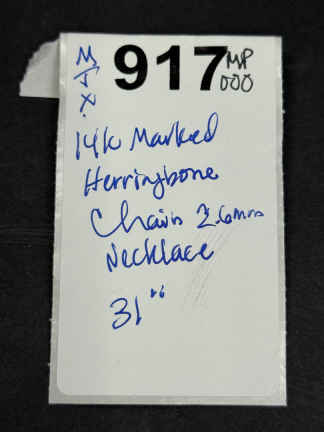 917
MP
000
14k Marked
Herringbone
Chain 2.6mm
Necklace
31"